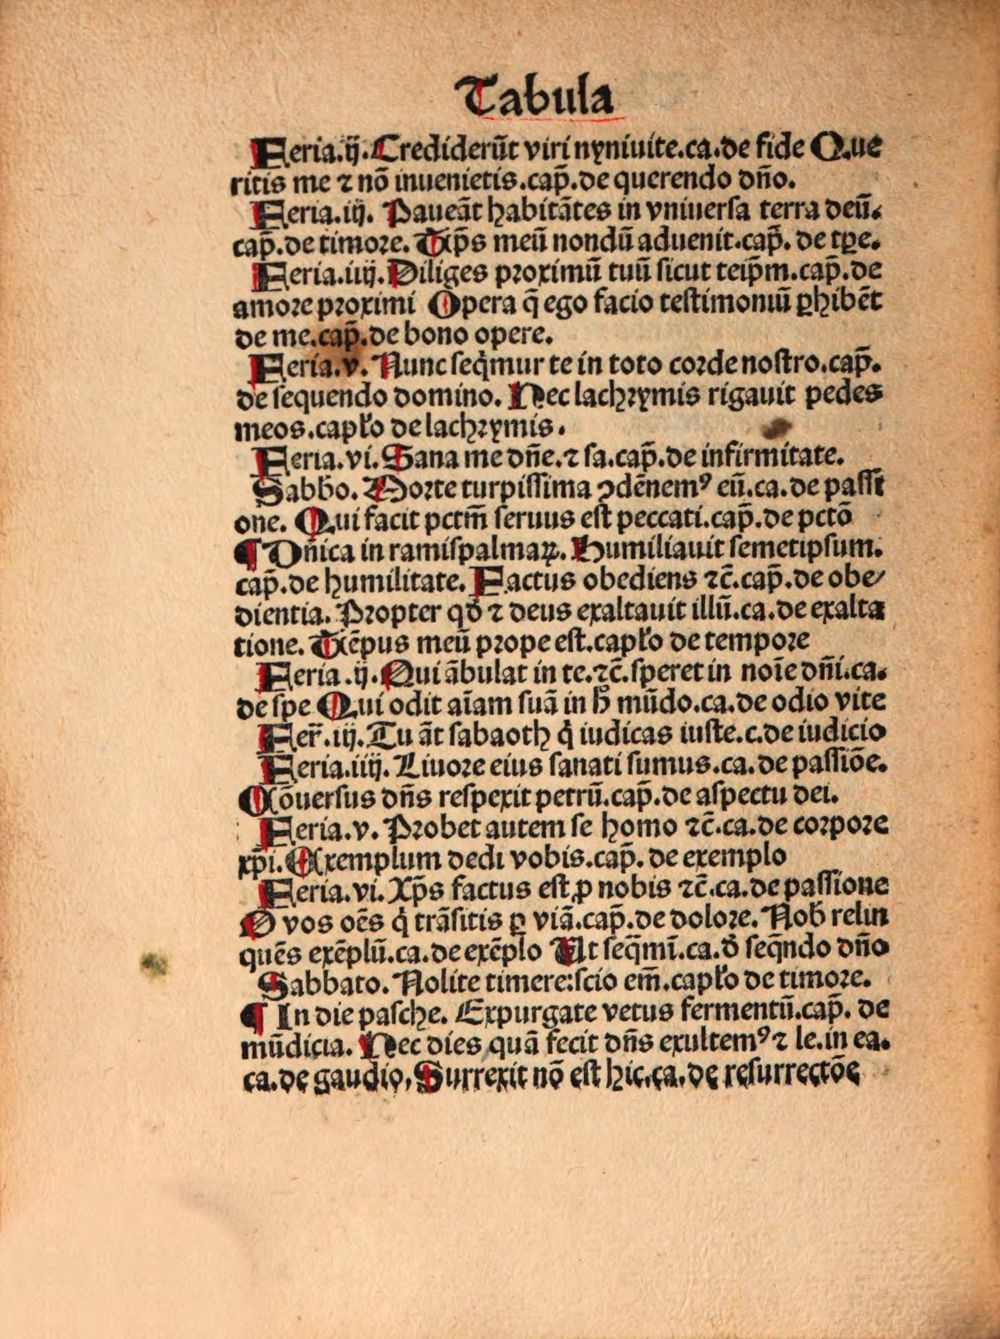 Tabula
Feria.ij. Crediderūt viri nyniuite.ca.de fide Que
ritis me ⁊ nō inuenietis.cap̄.de querendo dn̄o.
Feria.iij. Paueāt habitātes in vniuersa terra deū.
cap̄.de timore. Tp̄s meū nondū aduenit.cap̄. de tꝑe.
Feria.iiij. Diliges proximū tuū sicut teip̄m.cap̄.de
amore proximi Opera q̄ ego facio testimoniū ꝑhibēt
de me.cap̄.de bono opere.
Feria.v. Nunc seq̇mur te in toto corde nostro.cap̄.
de sequendo domino. Nec lachrymis rigauit pedes
meos.capľo de lachrymis.
Feria.vi. Sana me dn̄e.⁊ sa.cap̄.de infirmitate.
Sabbo. Morte turpissima ꝯdēnemꝰ eū.ca.de passi
one. Qui facit pctm̄ seruus est peccati.cap̄.de pctō
¶ Dn̄ica in ramispalmaꝝ. Humiliauit semetipsum.
cap̄.de humilitate. Factus obediens ⁊c̄.cap̄.de obe/
dientia. Propter qđ ⁊ deus exaltauit illū.ca.de exalta
tione. Tēpus meū prope est.capľo de tempore
Feria.ij. Qui ābulat in te.⁊c̄.speret in noīe dn̄i.ca.
de spe Qui odit aīam suā in h̄ mūdo.ca.de odio vite
Fer̄.iij. Tu āt sabaoth q̇ iudicas iuste.c.de iudicio
Feria.iiij. Liuore eius sanati sumus.ca.de passiōe.
Cōuersus dn̄s respexit petrū.cap̄.de aspectu dei.
Feria.v. Probet autem se homo ⁊c̄.ca.de corpore
xp̄i. Exemplum dedi vobis.cap̄. de exemplo
Feria.vi. Xp̄s factus est ꝓ nobis ⁊c̄.ca.de passione
O vos oēs q̇ trāsitis ꝑ viā.cap̄.de dolore. Nob̄ relin
quēs exēplū.ca.de exēplo Ut seq̄mī.ca.đ seq̄ndo dn̄o
Sabbato. Nolite timere:scio em̄.capľo de timore.
¶ In die pasche. Expurgate vetus fermentū.cap̄. de
mūdicia. Nec dies quā fecit dn̄s exultemꝰ ⁊ le.in ea.
ca.de gaudio, Surrexit nō est hic.ca.de resurrectōe